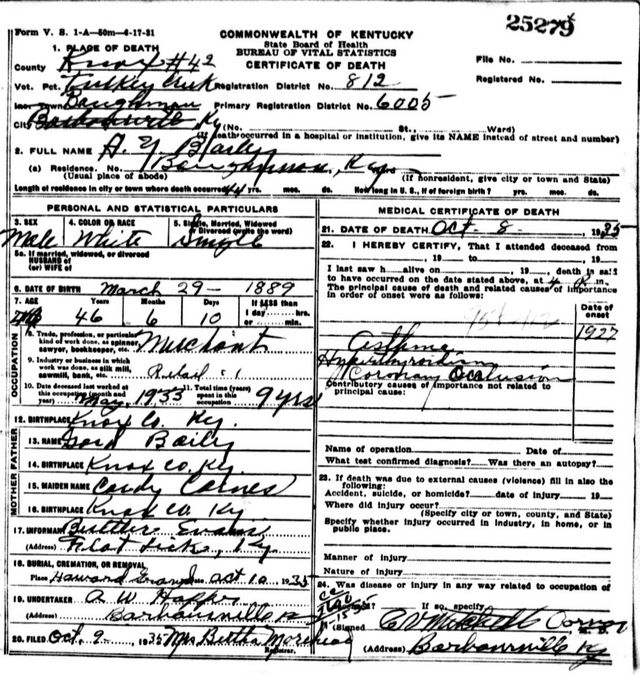 Form V. S. 1-A—50m—4-17-31
25279
COMMONWEALTH OF KENTUCKY
State Board of Health
BUREAU OF VITAL STATISTICS
CERTIFICATE OF DEATH
1. PLACE OF DEATH
County Knox #42
File No.
Registered No.
Vot. Pct. Turkey Creek Registration District No. 812
Inc. Town Baughman Primary Registration District No. 6005
City Barbourville Ky (No. St., Ward)
(If death occurred in a hospital or institution, give its NAME instead of street and number)
2. FULL NAME A. Y. Bailey
(a) Residence. No. Baughman, Ky
(Usual place of abode) (If nonresident, give city or town and State)
Length of residence in city or town where death occurred yrs. mos. ds. How long in U. S., if of foreign birth? yrs. mos. ds.
PERSONAL AND STATISTICAL PARTICULARS
3. SEX Male
4. COLOR OR RACE White
5. Single, Married, Widowed or Divorced (write the word) Single
5a. If married, widowed, or divorced
HUSBAND of
(or) WIFE of
6. DATE OF BIRTH March 29 - 1889
7. AGE Years Months Days If LESS than
46 6 10 1 day hrs. or min.
8. Trade, profession, or particular kind of work done, as spinner, sawyer, bookkeeper, etc. Merchant
OCCUPATION
9. Industry or business in which work was done, as silk mill, sawmill, bank, etc. Retail
10. Date deceased last worked at this occupation (month and year) May, 1933
11. Total time (years) spent in this occupation 9 yrs
12. BIRTHPLACE Knox Co. Ky.
MOTHER FATHER
13. NAME Bailey
14. BIRTHPLACE Knox Co. Ky.
15. MAIDEN NAME Carnes
16. BIRTHPLACE Knox Co. Ky
17. INFORMANT Evans
(Address) Ky.
18. BURIAL, CREMATION, OR REMOVAL
Place Howard Date Oct 10 1935
19. UNDERTAKER A W Hopper
(Address) Barbourville Ky
20. FILED Oct. 9 1935 Mrs Bertha
Registrar.
MEDICAL CERTIFICATE OF DEATH
21. DATE OF DEATH Oct - 8 - , 1935
22. I HEREBY CERTIFY, That I attended deceased from
, 19 to , 19
I last saw h alive on , 19 , death is said
to have occurred on the date stated above, at 4 m.
The principal cause of death and related causes of importance in order of onset were as follows:
Date of onset
1927
Asthma
Hyperthyroidism
Coronary Occlusion
Contributory causes of importance not related to principal cause:
Name of operation Date of
What test confirmed diagnosis? Was there an autopsy?
23. If death was due to external causes (violence) fill in also the following:
Accident, suicide, or homicide? date of injury 19
Where did injury occur?
(Specify city or town, county, and State)
Specify whether injury occurred in industry, in home, or in public place.
Manner of injury
Nature of injury
24. Was disease or injury in any way related to occupation of deceased?
If so, specify
(Signed) Mitchell Coroner
(Address) Barbourville Ky